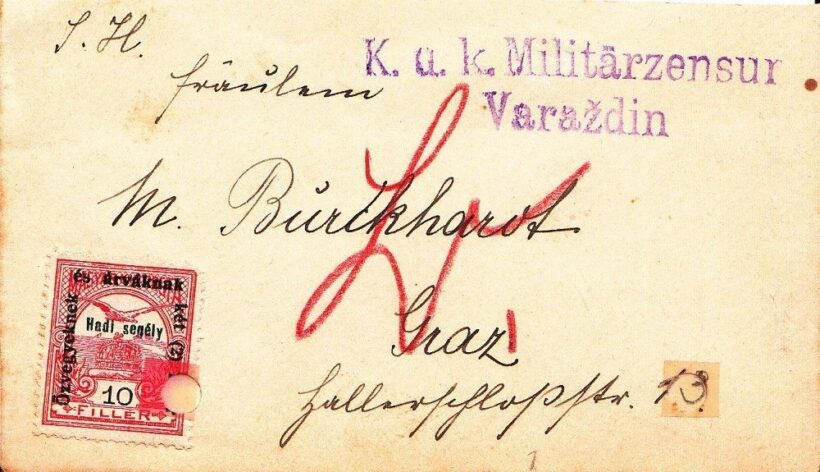 S. H.
K. u. k. Militärzensur
Varaždin
Fräulein
M. Burckhardt
Graz
Hallerschloßstr. 13.
Özvegyeknek és árváknak két (2)
Hadi segély
10
FILLER